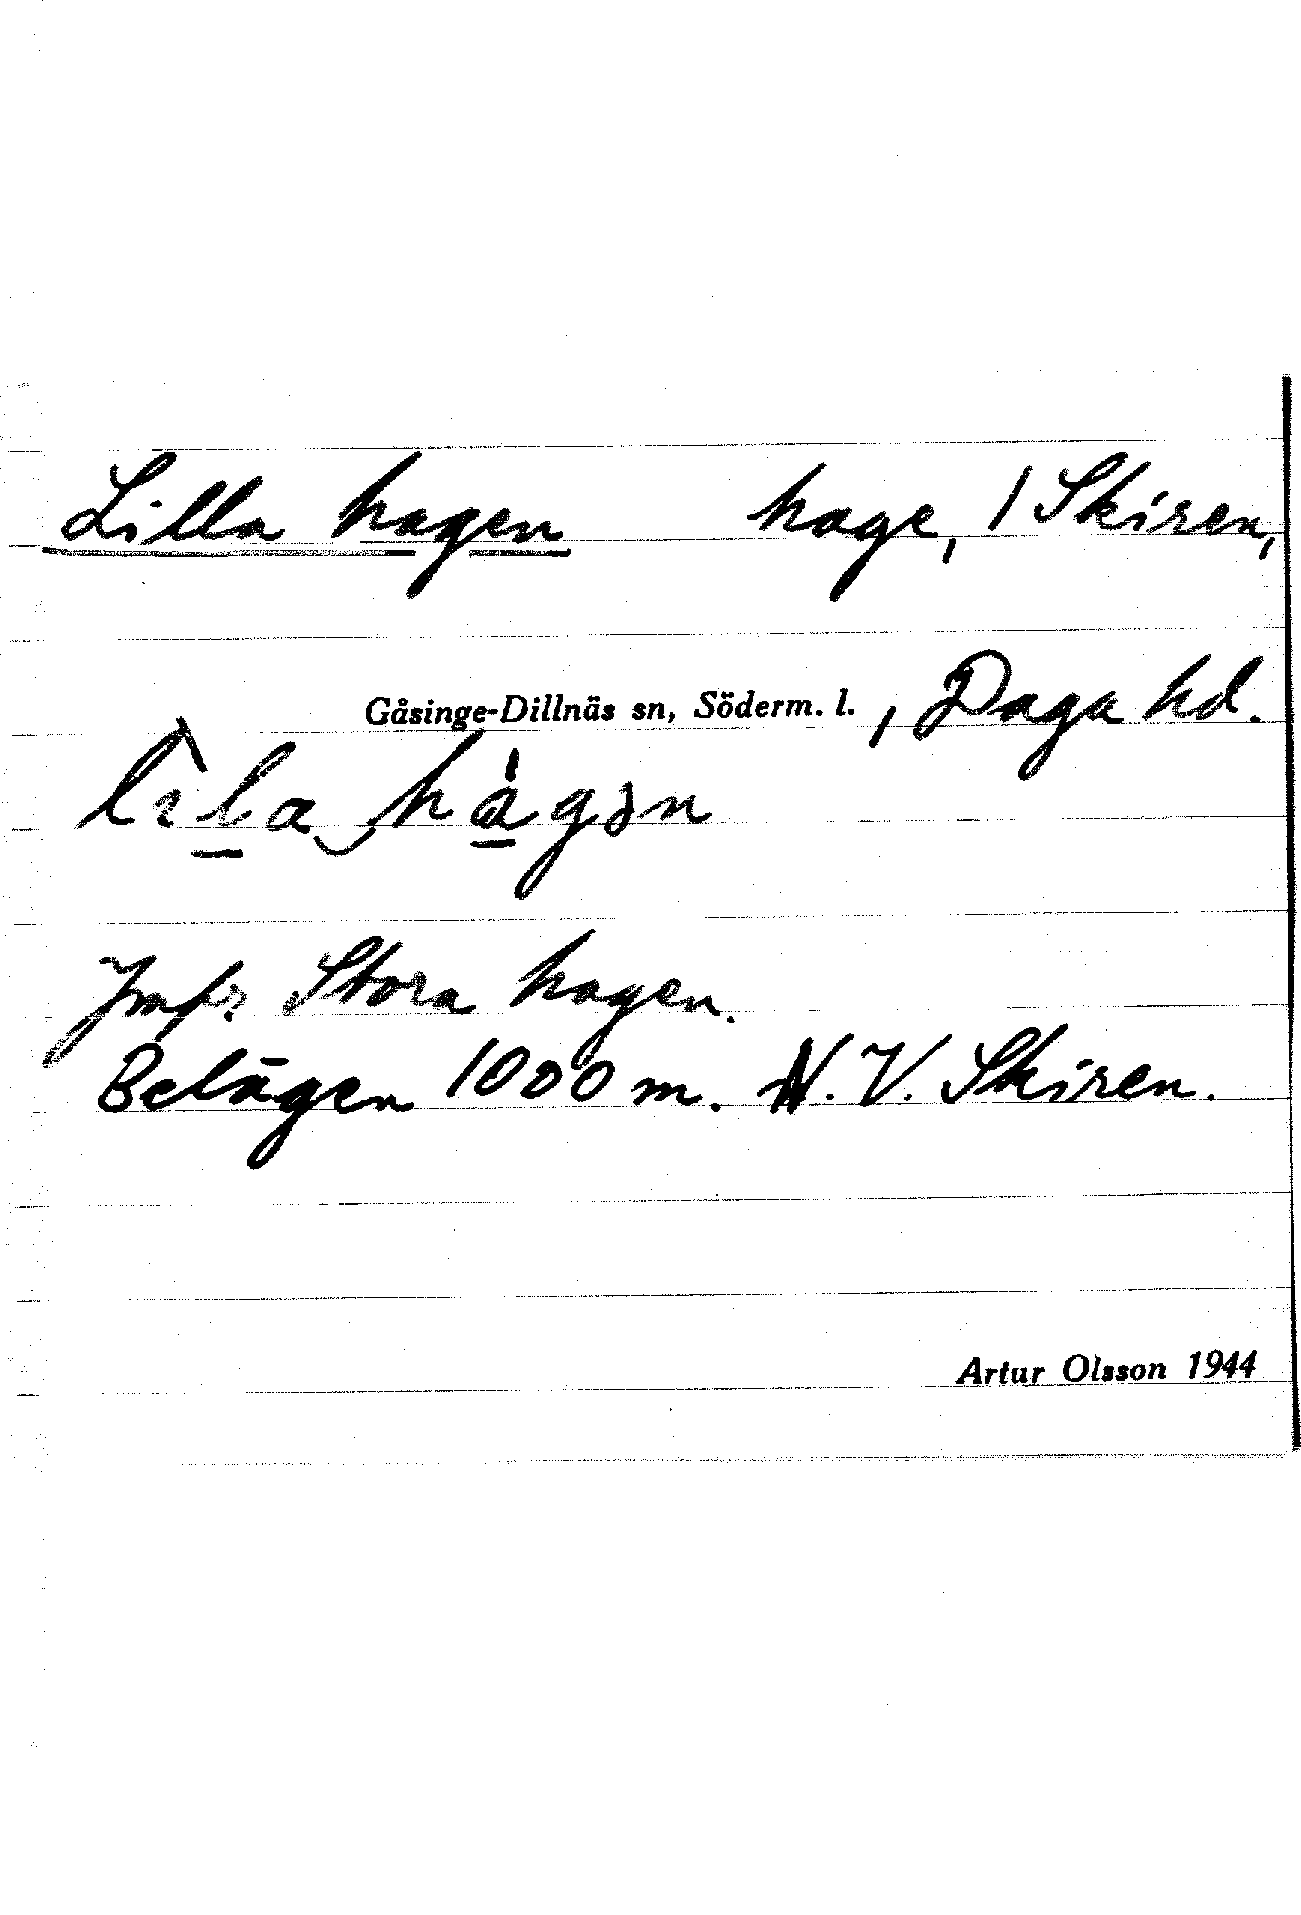 Lilla hagen hage, / Skiren,
Gåsinge-Dillnäs sn, Söderm. l. , Daga hd.
Jmfr Stora hagen.
Belägen 1000 m. N.V. Skiren.
Artur Olsson 1944